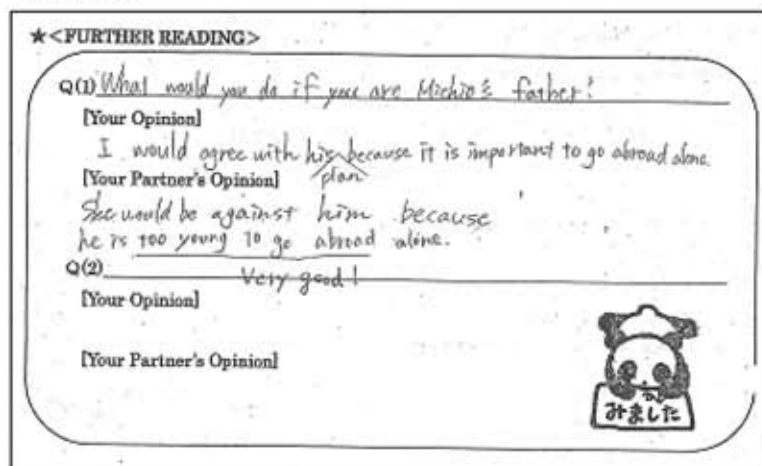 ★<FURTHER READING>
Q(1) What would you do if you are Michio's father?
[Your Opinion]
I would agree with his plan because it is important to go abroad alone.
[Your Partner's Opinion]
She would be against him because
he is too young to go abroad alone.
Very good!
Q(2)
[Your Opinion]
[Your Partner's Opinion]
みました